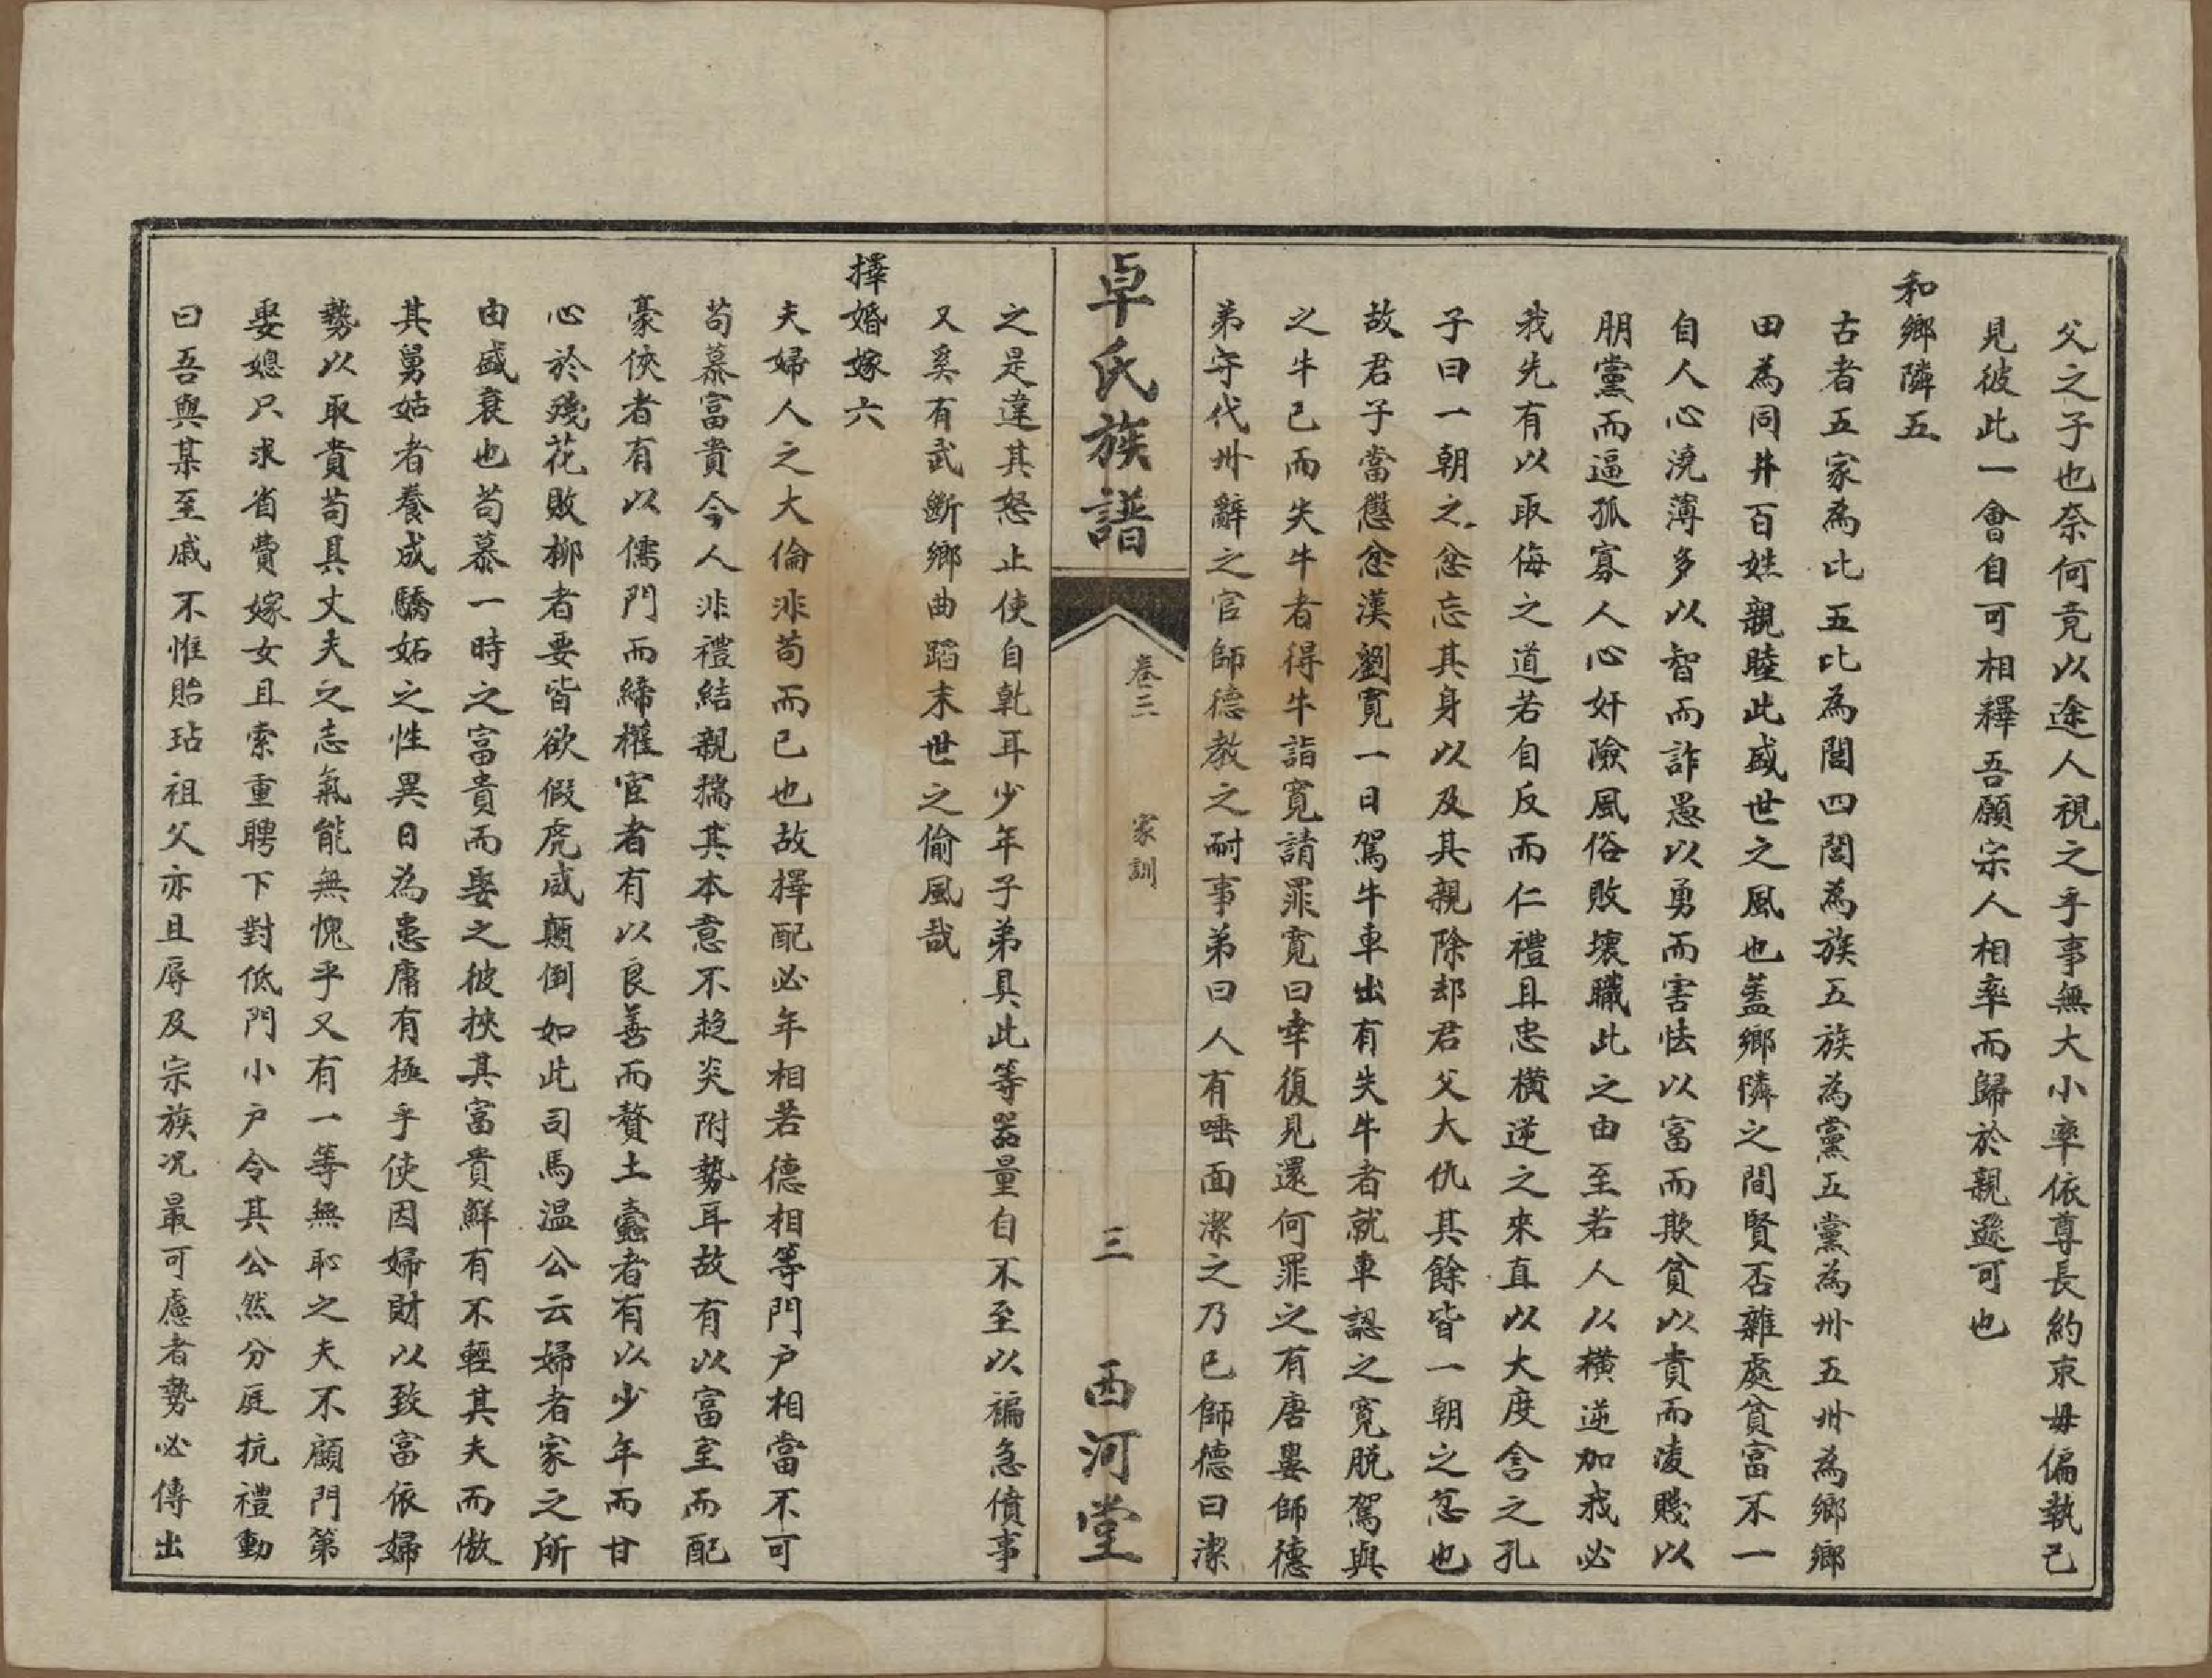 父之子也奈何竟以途人視之乎事無大小率依尊長約束毋偏執己
見彼此一會自可相釋吾願宗人相率而歸於親遜可也
和鄉隣五
古者五家為比五比為閭四閭為族五族為黨五黨為州五州為鄉鄉
田為同井百姓親睦此盛世之風也蓋鄉隣之間賢否雜處貧富不一
自人心澆薄多以智而詐愚以勇而害怯以富而欺貧以貴而凌賤以
朋黨而逼孤寡人心奸險風俗敗壞職此之由至若人以橫逆加我必
我先有以取侮之道若自反而仁禮且忠橫逆之來直以大度含之孔
子曰一朝之忿忘其身以及其親除却君父大仇其餘皆一朝之忿也
故君子當懲忿漢劉寬一日駕牛車出有失牛者就車認之寬脫駕與
之牛已而失牛者得牛詣寬請罪寬曰幸復見還何罪之有唐婁師德
弟守代州辭之官師德教之耐事弟曰人有唾面潔之乃已師德曰潔
卓氏族譜
卷三
家訓
三
西河堂
之是違其怒止使自乾耳少年子弟具此等器量自不至以褊急僨事
又奚有武斷鄉曲蹈末世之偷風哉
擇婚嫁六
夫婦人之大倫非苟而已也故擇配必年相若德相等門户相當不可
苟慕富貴今人非禮結親揣其本意不趋炎附勢耳故有以富室而配
豪俠者有以儒門而締權宦者有以良善而贅土蠹者有以少年而甘
心於殘花敗柳者要皆欲假虎威顛倒如此司馬温公云婦者家之所
由盛衰也苟慕一時之富貴而娶之彼挾其富貴鮮有不輕其夫而傲
其舅姑者養成驕妬之性異日為患庸有極乎使因婦財以致富依婦
勢以取貴苟具丈夫之志氣能無愧乎又有一等無恥之夫不顧門第
娶媳只求省費嫁女且索重聘下對低門小户令其公然分庭抗禮動
曰吾與某至戚不惟貽玷祖父亦且辱及宗族况最可慮者勢必傳出